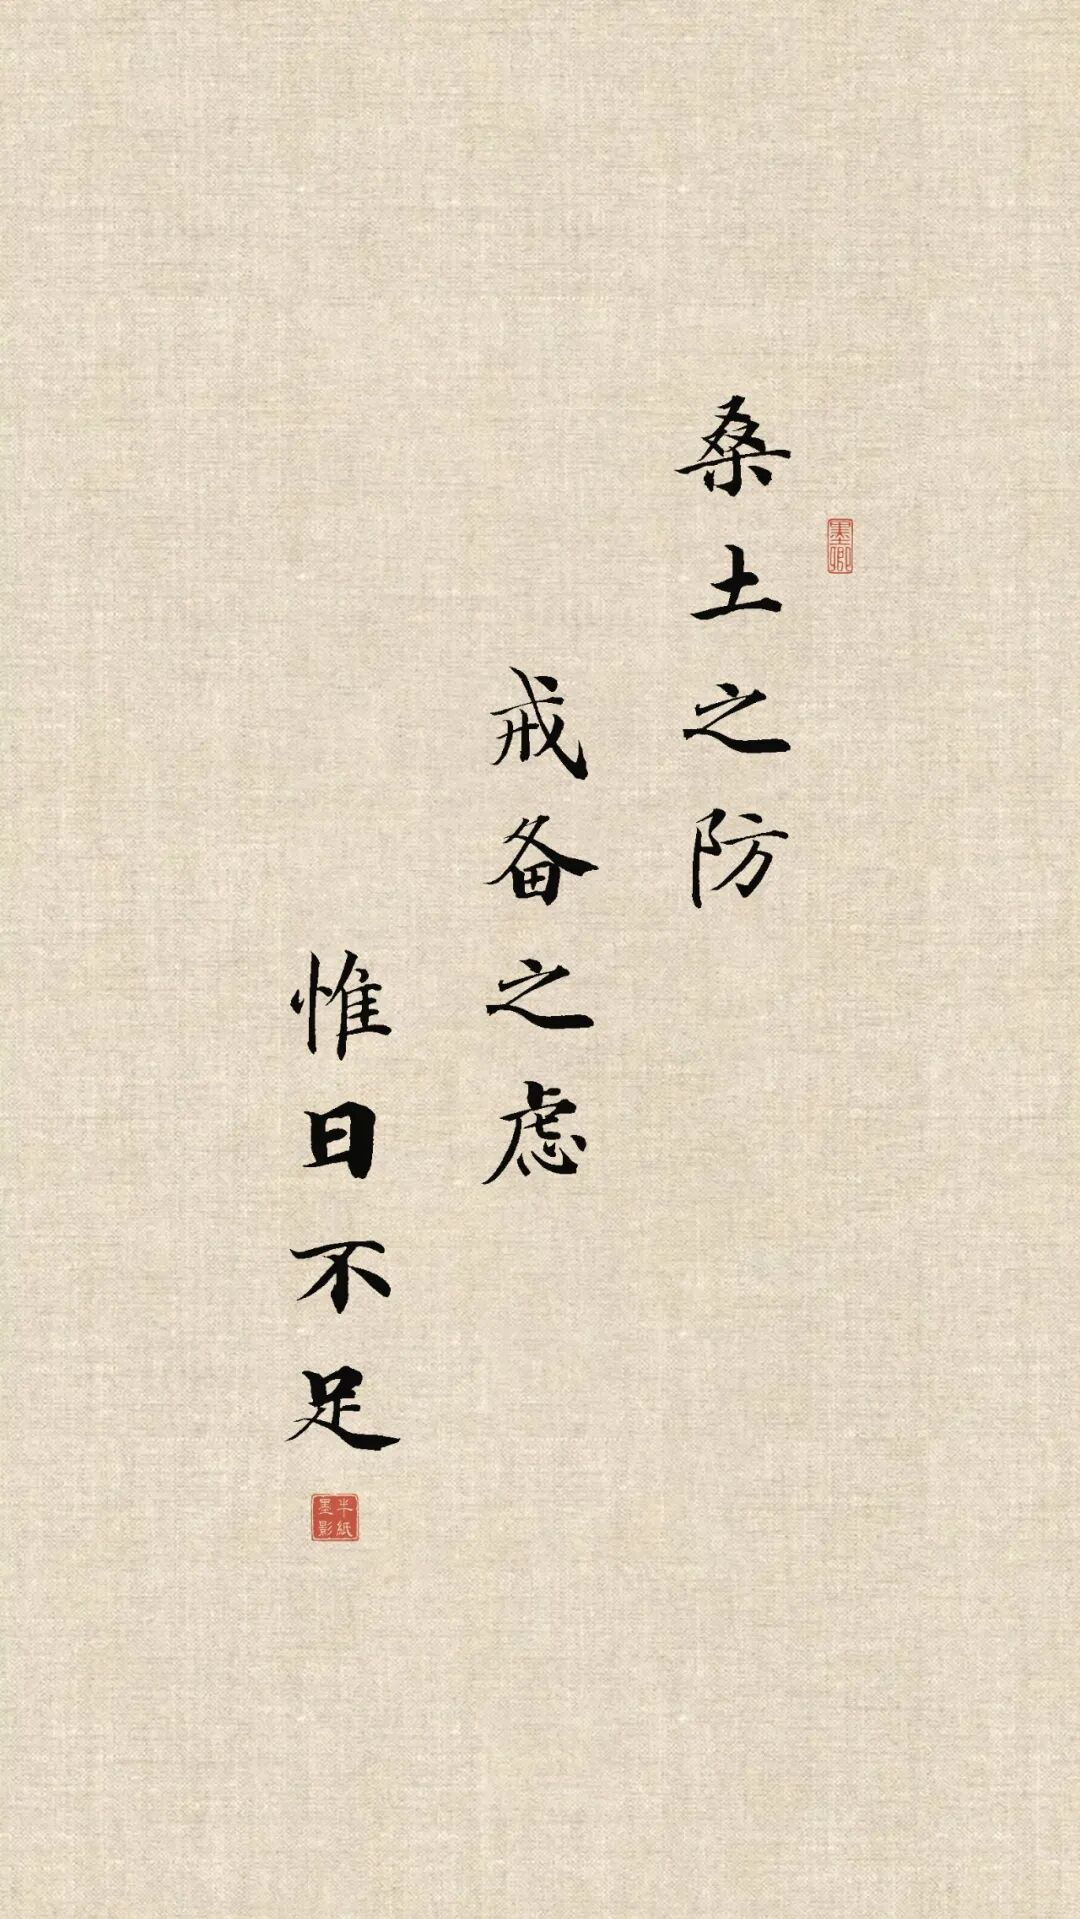 桑土之防
戒备之虑
惟日不足
墨卿
半纸
墨影